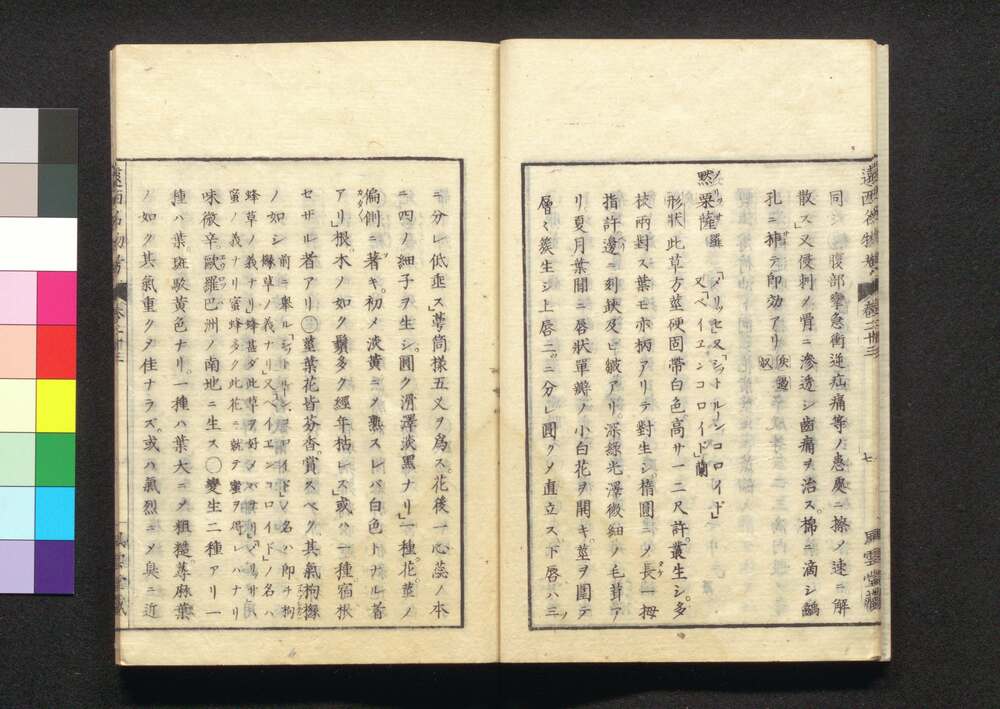 同シ腹部攣急衝逆疝痛等ノ患處ニ擦ノ速ニ解
散ス又侵刺ノ骨ニ滲透シ齒痛ヲ治ス綿ニ滴シ齲
孔ニ挿テ即効アリ
黙栗薩羅 「メリッセ」又「シットルーンコロイド」
又「ベイエンコロイド」蘭
形狀此草方莖硬固帶白色高サ一二尺許叢生シ多
枝兩對ス葉モ亦柄アリテ對生シ楕圓ニ〆長一拇
指許邊ニ刻缺及ヒ皺アリ深緑光澤微細ノ毛茸ア
リ夏月葉間ニ唇狀單瓣ノ小白花ヲ開キ莖ヲ圍テ
層々簇生シ上唇ニ二分シ圓ク〆直立ス下唇ハ三
二分レ低垂ス萼筒樣五叉ヲ爲ス花後一心蕊ノ本
ニ四ノ細子ヲ生シ圓ク滑澤淡黑ナリ一種花莖ノ
偏側ニ著キ初メ淡黄ニ〆熟スレバ白色トナル者
アリ根木ノ如ク鬚多ク經年枯レス或ハ一種宿根
セザル者アリ○莖葉花皆芬香賞スベク其氣枸櫞
ノ如シ前ニ擧ル「シットルーンコロイド」ノ名ハ即チ枸
櫞草ノ義ナリ又「ベイエンコロイド」ノ名ハ
蜂草ノ義ナリ蜂甚ダ此草ヲ好メバナリ「メリッサ」ハ
蜜ノ義ナリ蜜蜂多ク此花ニ就テ蜜ヲ得レハナリ
味微辛歐羅巴洲ノ南地ニ生ス○變生二種アリ一
種ハ葉斑駁黄色ナリ一種ハ葉大ニ〆粗糙蕁麻葉
ノ如ク其氣重ク〆佳ナラズ或ハ氣烈ニ〆臭ニ近
七
風雲堂藏